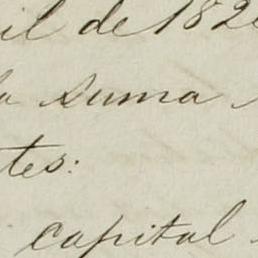 il de 182
la suma
tes:
capital